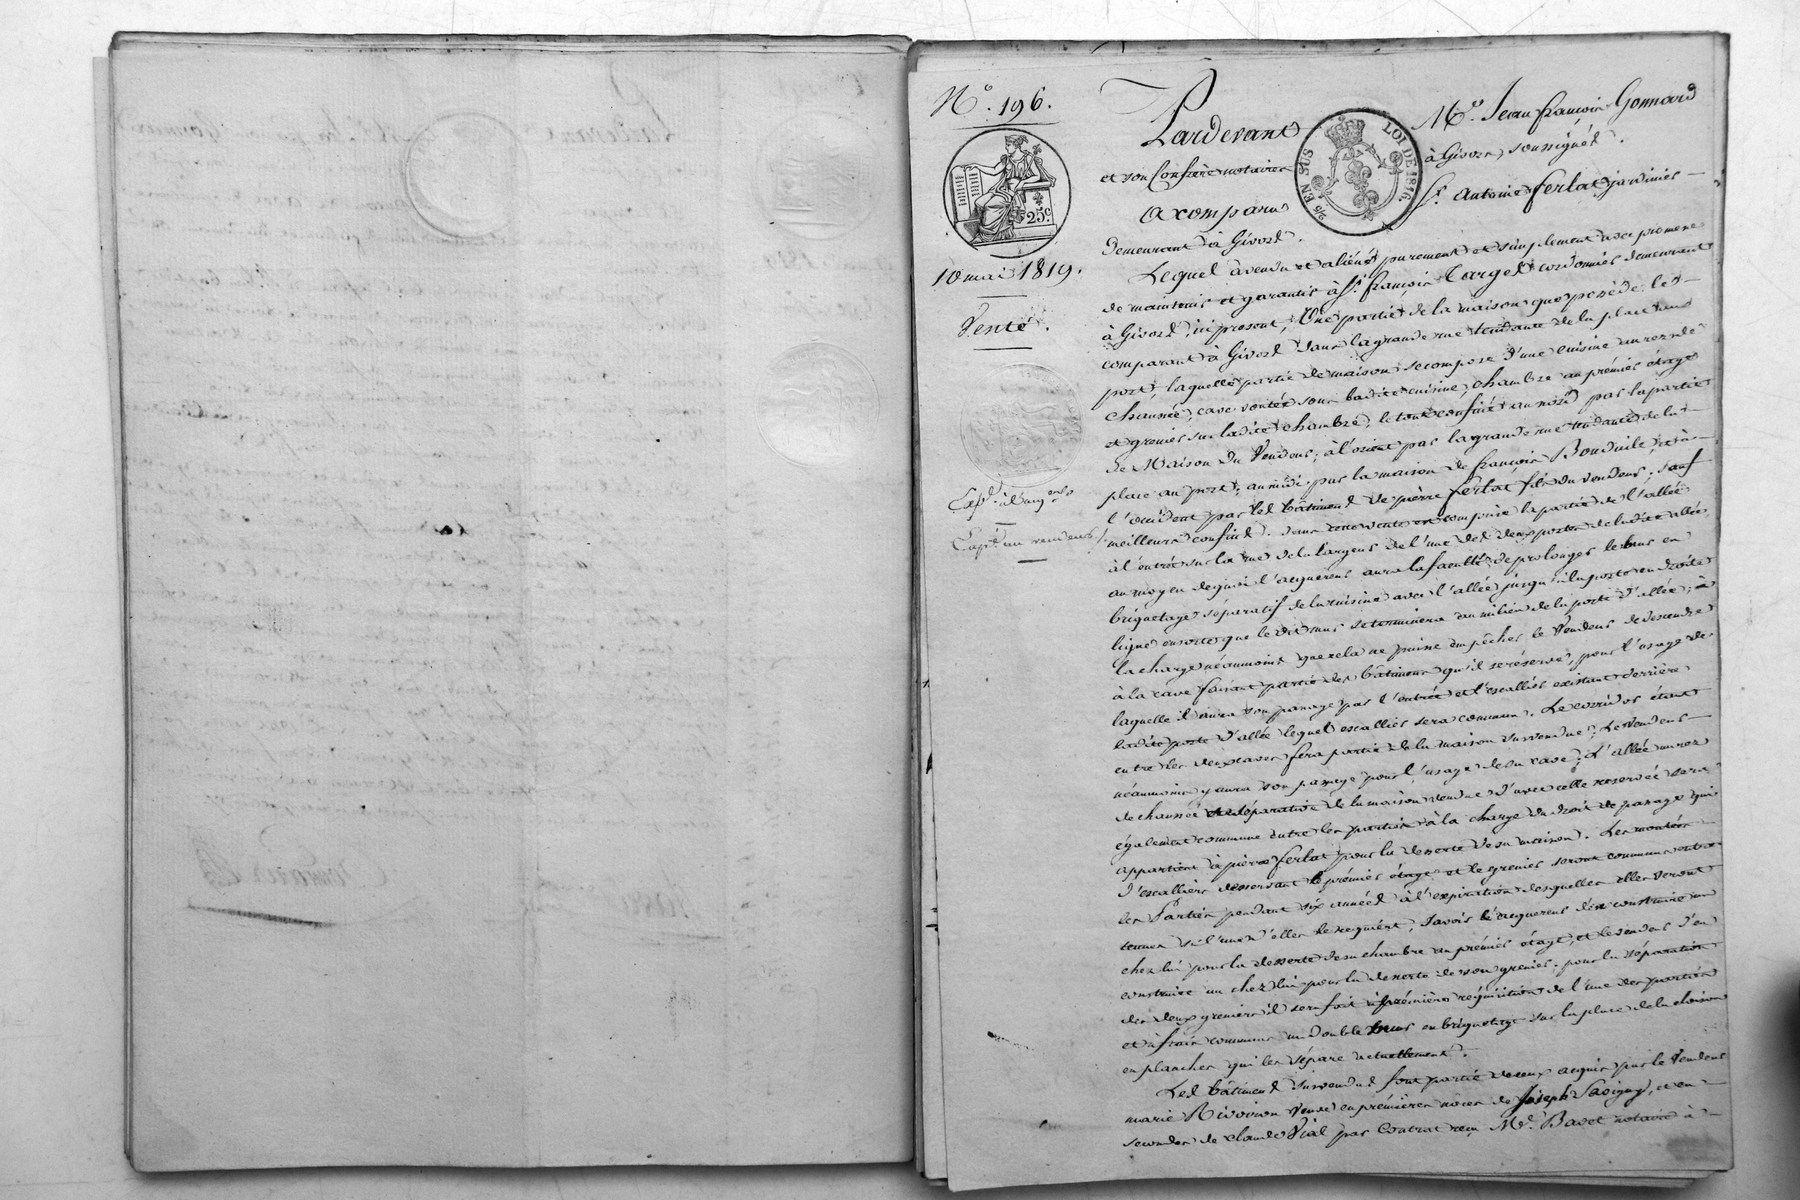 N.º 196.
25.c
10 mai 1819.
Vente.
Pardevant Mº. Jean françois Gonnard
et son Confrère notaires à Givors, soussignés.
5/6 EN SUS LOI DE 1816.
a comparu Sr. antoine ferlat jardinier
demeurant à Givors.
Lequel à vendu et aliéné purement et simplement avec promesse
de maintenir et garantir à Sr. françois Carge cordonnier demeurant
à Givors, ici présent, Une partie de la maison que possède le
comparant à Givors dans la grande rue tendante de la place au
port, laquelle partie de maison se compose d'une cuisine au rez de
chaussée, cave voutée sous ladite cuisine, chambre au prémier étage
et grenier sur ladite chambre, le tout confiné au nord par la partie
de Maison du Vendeur, à l'orient par la grande rue tendante de la
place au port, au midi par la maison de françois, et à
l'occident par les bâtimens de pierre ferlat fils du vendeur, sauf
meilleurs confins. dans cette vente est comprise la partie de l'allée
à l'entrée sur la rue de la largeur de l'une des deux portes de ladite allée
au moyen de quoi l'acquéreur aura la faculté de prolonger le mur en
briquetage séparatif de la cuisine avec l'allée jusqu'à la porte en droite
ligne ensorte que le dit mur se terminera au milieu de la porte d'allée; à
la charge néanmoins que cela ne puisse empêcher le Vendeur de descendre
à la cave faisant partie des bâtimens qu'il se réserve, pour l'usage de
laquelle il aura son passage par l'entrée et l'escallier existant derrière
ladite porte d'allée lequel escallier sera commun. Le corridor étant
entre les deux caves fera partie de la maison survendue; Le vendeur
néanmoins y aura son passage pour l'usage de sa cave; L'allée au rez
de chaussée séparative de la maison vendue d'avec celle reservée sera
également commune entre les parties à la charge du droit de passage qui
appartient à pierre ferlat pour la desserte de sa maison. Les montées
d'escalliers desservant le prémier étage et le grenier seront communes entre
les Parties pendant six années à l'expiration desquelles elles seront
tenues si l'une d'elles le requiert, savoir l'acquereur d'en construire une
chez lui pour la desserte de sa chambre au prémier étage, et le vendeur d'en
construire un chez lui pour la desserte de son grenier. pour la séparation
des deux greniers il sera fait à prémière réquisition de l'une des parties
et à frais communs un double mur en briquetage sur la place de la cloison
en planches qui les sépare actuellement.
Les bâtimens survendus font partie de ceux acquis par le Vendeur
marie Rivoiron Veuve en prémières nôces de Joseph Savigny, et en
secondes de claude Vial par Contrat reçu Me. Bavet notaire à